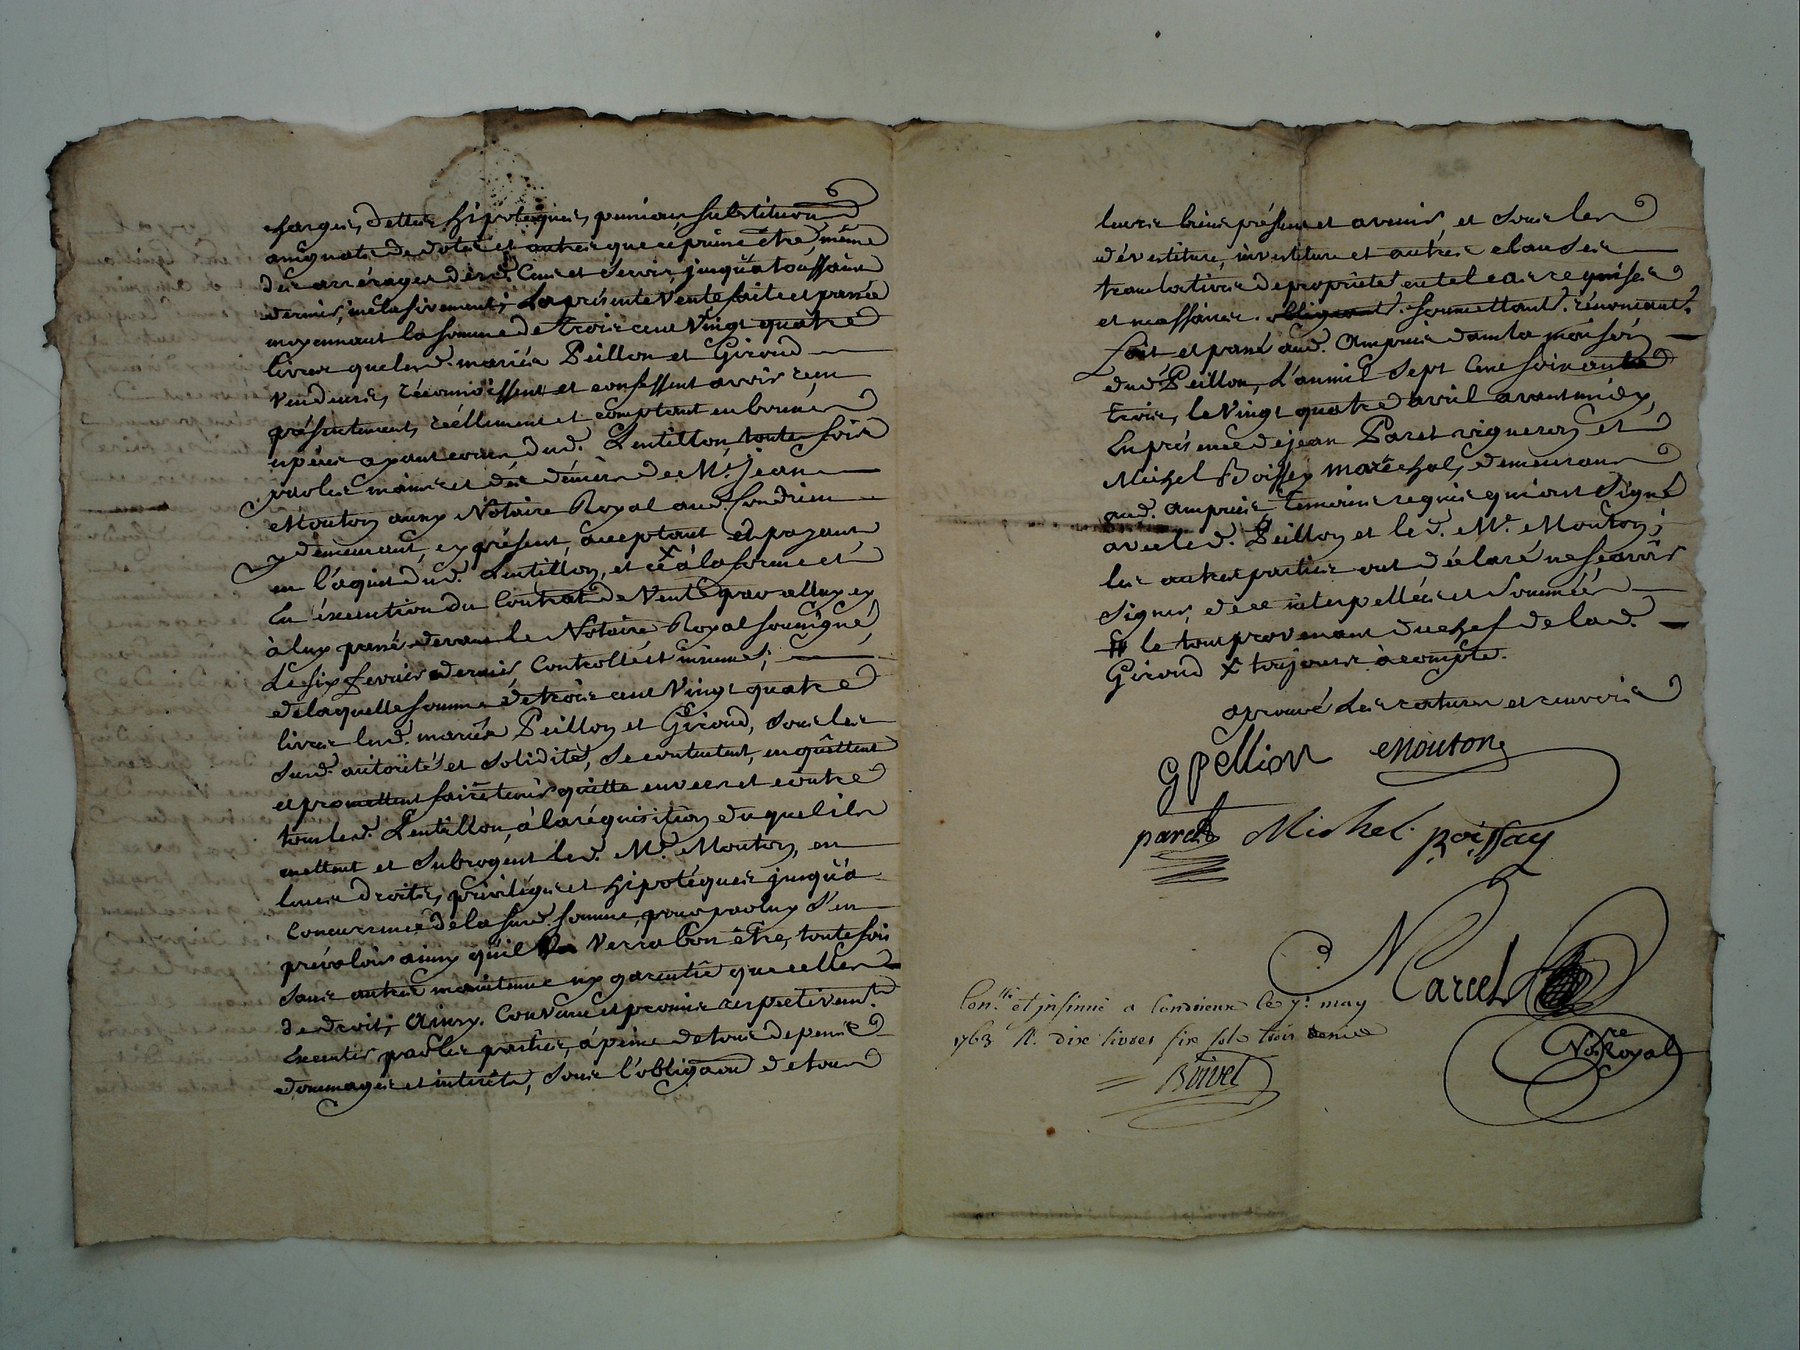 charges, dettes hipotèques, pensions substitution
assignats de dotes et autres que ce puisse être même
des arrérages desd. Cens et servis jusqu'a toussaint
dernier, inclusivement; La présente Vente faite et passée
moyennant la somme de trois cent Vingt quatre
livres que lesd. mariés Peillon et Giroud
Vendeurs, réconnoissent et confessent avoir reçu
présentement, réellement et comptant en bonnes
espèces ayant cours dud. Lentillon, toutes fois
par les mains et des déniers de Me. Jean
Mouton aussy Notaire Royal aud. Condrieu
y démeurant, cy présent, acceptant et payant
en l'aquit dud. Lentillon, et ce x à la forme et
En éxécution du Contrat de Vente par celluy cy
à luy passé devant le Notaire Royal soussigné,
Le six fevrier dernier, Controllé et insinué;
de laquelle somme de trois cent Vingt quatre
livres lesd. mariés Peillon et Giroud, sous les
susd. autorité et solidité, se contentent, en quittent
et promettent faire tenir quitte envers et contre
tous led. Lentillon, à la réquisition duquel ils
mettent et subrogent led. Me. Mouton, en
leurs droits, privilèges et hipotèques jusqu'à
Concurrence de la susd. somme, pour par luy s'en
prévaloir ainsy qu'il Verra bon être, toutefois
sans autre maintenue ny garentie que celles
de droit; Ainsy. Convenu et promis respectivemt.
Executer par les parties, à peine de tous depens
dommages et intérêts, sous l'obligaon de tous
leurs biens présents et avenir, et sous les
dévestiture, investiture et autres clauses
translatives de propriété en tel cas requises
et nessaires. obligeant. soumettant. rénonçant.
Fait et passé aud. Ampuis dans la maison
dud. Peillon, L'an mil sept Cent soixante
trois, le Vingt quatre avril avant midy,
En présence de jean Paret vigneron et
Michel Boissey maréchal, demeurans
aud. ampuis témoins requis qui ont signé
avec led. Peillon et led. Me. Mouton;
les autres parties ont déclaré ne sçavoir
signer, de ce interpellées et sommées
# le tout provenant du chef de lad.
Giroud x toujours à compte.
aprouvé les ratures et renvois
G pellion Mouton
paret Michel Boissay
Marcel
Nore Royal
Conllé. et insinué a Condrieux le 7e. may
1763 R. dix livres six sols trois denier
Boivel